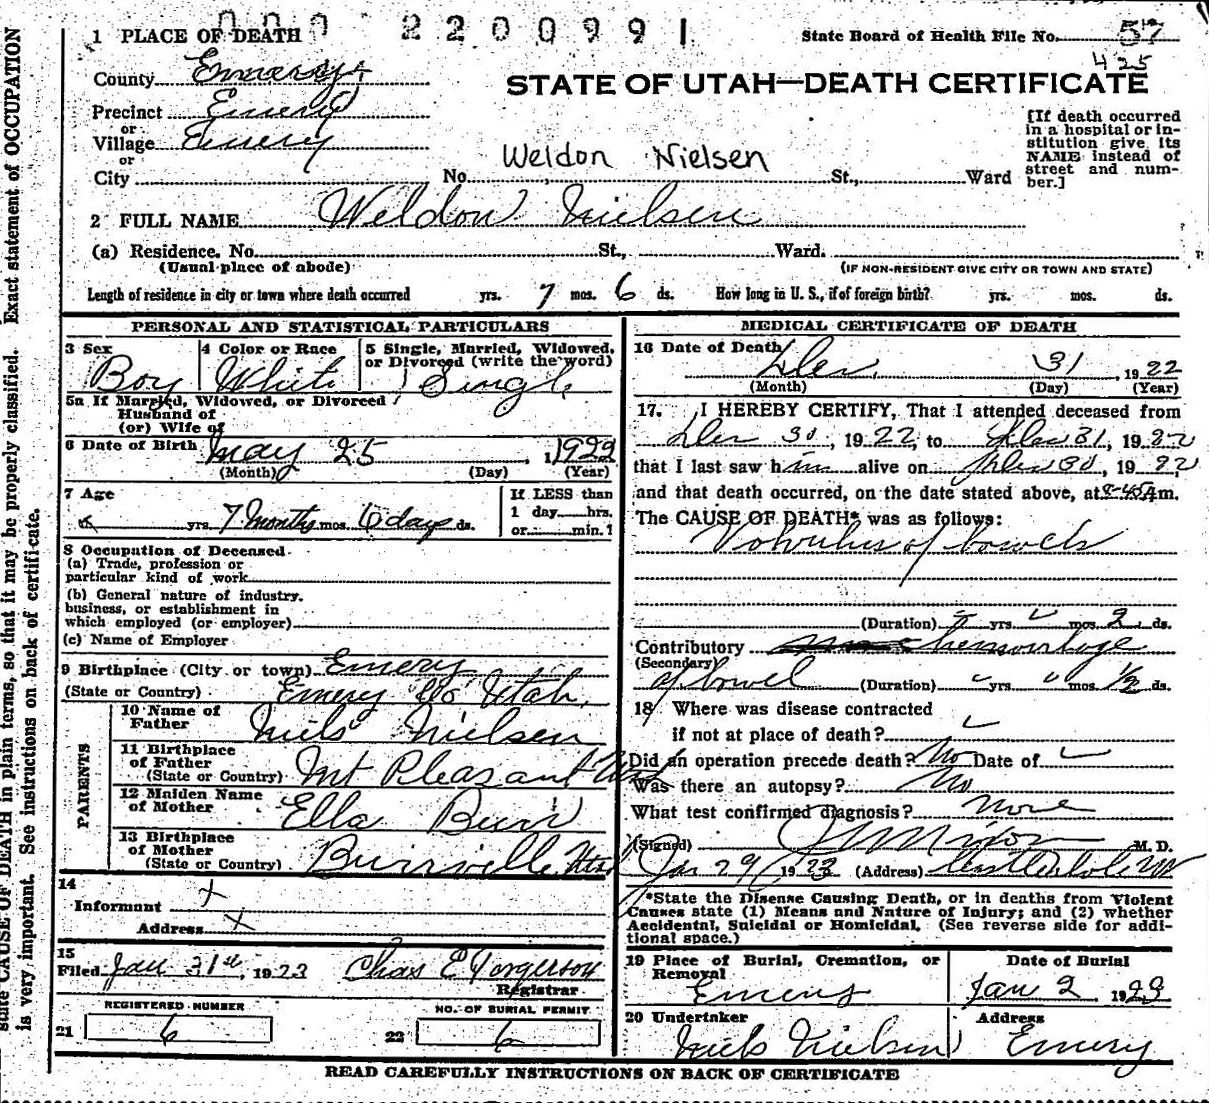 000 2200991
1 PLACE OF DEATH
State Board of Health File No. 57
425
County Emery
STATE OF UTAH—DEATH CERTIFICATE
Precinct Emery
or
Village Emery
or
City No. Weldon Nielsen St., Ward
[If death occurred
in a hospital or in-
stitution give its
NAME instead of
street and num-
ber.]
2 FULL NAME Weldon Nielsen
(a) Residence. No. St., Ward.
(Usual place of abode) (IF NON-RESIDENT GIVE CITY OR TOWN AND STATE)
Length of residence in city or town where death occurred yrs. 7 mos. 6 ds. How long in U. S., if of foreign birth? yrs. mos. ds.
PERSONAL AND STATISTICAL PARTICULARS
3 Sex 4 Color or Race 5 Single, Married, Widowed,
or Divorced (write the word)
Boy White Single
5a If Married, Widowed, or Divorced
Husband of
(or) Wife of
6 Date of Birth May 25, 1922
(Month) (Day) (Year)
7 Age
yrs. 7 months mos. 6 days ds.
If LESS than
1 day hrs.
or min.?
8 Occupation of Deceased
(a) Trade, profession or
particular kind of work
(b) General nature of industry,
business, or establishment in
which employed (or employer)
(c) Name of Employer
9 Birthplace (City or town) Emery
(State or Country) Emery Co Utah
PARENTS
10 Name of
Father Niels Nielsen
11 Birthplace
of Father
(State or Country) Mt Pleasant Utah
12 Maiden Name
of Mother Ella Burr
13 Birthplace
of Mother
(State or Country) Burrville Utah
14
Informant x
Address x
15
Filed Jan 31st, 1923 Chas E Jorgerson
Registrar
REGISTERED NUMBER NO. OF BURIAL PERMIT
21 6 22 6
MEDICAL CERTIFICATE OF DEATH
16 Date of Death Dec 31, 1922
(Month) (Day) (Year)
17. I HEREBY CERTIFY, That I attended deceased from
Dec 30, 1922, to Dec 31, 1922
that I last saw him alive on Dec 30, 1922
and that death occurred, on the date stated above, at 8-45 A m.
The CAUSE OF DEATH* was as follows:
Volvulus of bowels
(Duration) yrs. mos. 2 ds.
Contributory hemorrhage
(Secondary)
of bowel (Duration) yrs. mos. 1/2 ds.
18 Where was disease contracted
if not at place of death?
Did an operation precede death? No Date of
Was there an autopsy? No
What test confirmed diagnosis? None
(Signed) M. D.
Jan 29, 1923 (Address) Castledale Ut
*State the Disease Causing Death, or in deaths from Violent
Causes state (1) Means and Nature of Injury; and (2) whether
Accidental, Suicidal or Homicidal. (See reverse side for addi-
tional space.)
19 Place of Burial, Cremation, or
Removal
Emery
Date of Burial
Jan 2 1923
20 Undertaker Address
Niels Nielsen Emery
READ CAREFULLY INSTRUCTIONS ON BACK OF CERTIFICATE
state CAUSE OF DEATH in plain terms, so that it may be properly classified. Exact statement of OCCUPATION
is very important. See instructions on back of certificate.